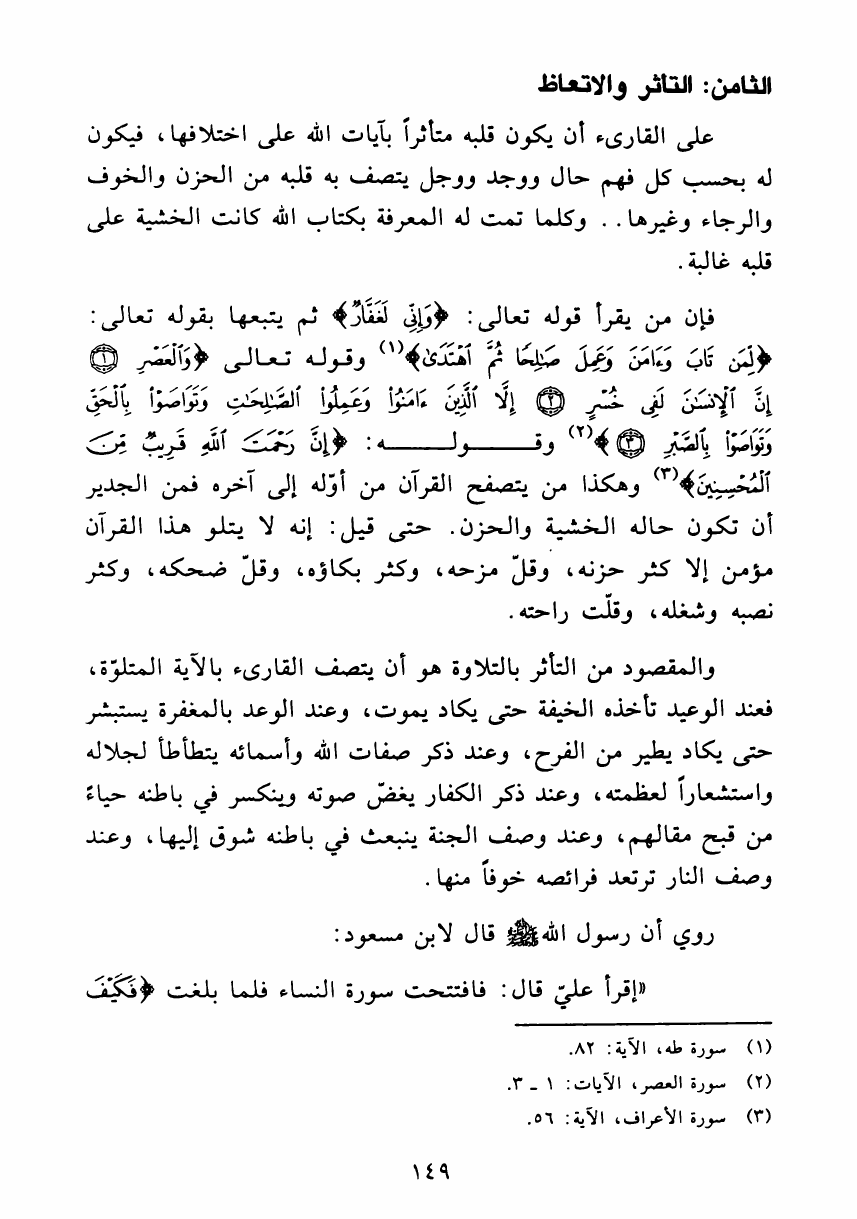 الثامن: التأثر والاتعاظ
على القارىء أن يكون قلبه متأثراً بآيات الله على اختلافها، فيكون
له بحسب كل فهم حال ووجد ووجل يتصف به قلبه من الحزن والخوف
والرجاء وغيرها.. وكلما تمت له المعرفة بكتاب الله كانت الخشية على
قلبه غالبة.
فإن من يقرأ قوله تعالى: ﴿وَإِنِّي لَغَفَّارٌ﴾ ثم يتبعها بقوله تعالى:
﴿لِّمَن تَابَ وَءَامَنَ وَعَمِلَ صَٰلِحًا ثُمَّ ٱهْتَدَىٰ﴾(١) وقوله تعالى ﴿وَٱلْعَصْرِ ١
إِنَّ ٱلْإِنسَٰنَ لَفِى خُسْرٍ ٢ إِلَّا ٱلَّذِينَ ءَامَنُوا۟ وَعَمِلُوا۟ ٱلصَّٰلِحَٰتِ وَتَوَاصَوْا۟ بِٱلْحَقِّ
وَتَوَاصَوْا۟ بِٱلصَّبْرِ ٣﴾(٢) وقوله: ﴿إِنَّ رَحْمَتَ ٱللَّهِ قَرِيبٌ مِّنَ
ٱلْمُحْسِنِينَ﴾(٣) وهكذا من يتصفح القرآن من أوّله إلى آخره فمن الجدير
أن تكون حاله الخشية والحزن. حتى قيل: إنه لا يتلو هذا القرآن
مؤمن إلا كثر حزنه، وقلّ مزحه، وكثر بكاؤه، وقلّ ضحكه، وكثر
نصبه وشغله، وقلّت راحته.
والمقصود من التأثر بالتلاوة هو أن يتصف القارىء بالآية المتلوّة،
فعند الوعيد تأخذه الخيفة حتى يكاد يموت، وعند الوعد بالمغفرة يستبشر
حتى يكاد يطير من الفرح، وعند ذكر صفات الله وأسمائه يتطأطأ لجلاله
واستشعاراً لعظمته، وعند ذكر الكفار يغضّ صوته وينكسر في باطنه حياءً
من قبح مقالهم، وعند وصف الجنة ينبعث في باطنه شوق إليها، وعند
وصف النار ترتعد فرائصه خوفاً منها.
روي أن رسول الله ﷺ قال لابن مسعود:
«إقرأ عليّ قال: فافتتحت سورة النساء فلما بلغت ﴿فَكَيْفَ
(١) سورة طه، الآية: ٨٢.
(٢) سورة العصر، الآيات: ١ - ٣.
(٣) سورة الأعراف، الآية: ٥٦.
١٤٩